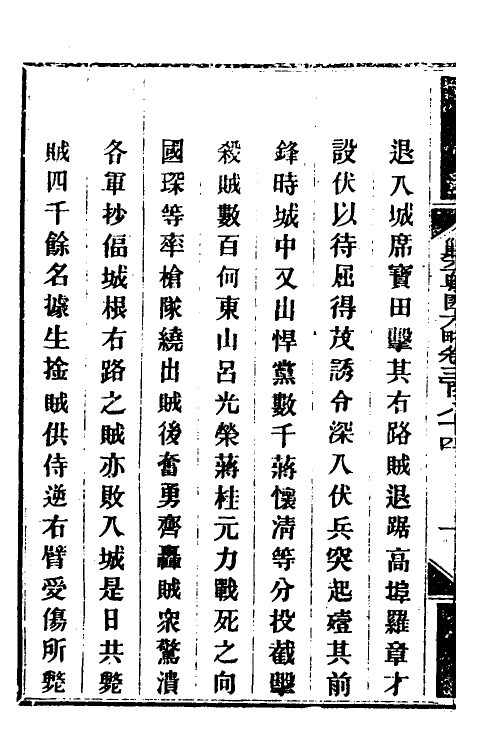 退入城席寶田擊其右路賊退踞高埠羅章才
設伏以待屈得茂誘令深入伏兵突起殪其前
鋒時城中又出悍黨數千蔣懷清等分投截擊
殺賊數百何東山呂光榮蔣桂元力戰死之向
國琛等率槍隊繞出賊後奮勇齊轟賊衆驚潰
各軍抄偪城根右路之賊亦敗入城是日共斃
賊四千餘名據生捡賊供侍逆右臂受傷所斃